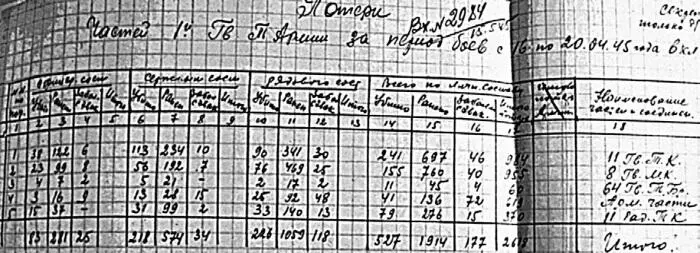 Потери
Вх № 2984
13.5.45
Частей 1й Гв Т Армии за период боев с 16 по 20.04.45 года вкл
Секрет
только
офицер. сост сержант. сост рядового сост Всего по личн. составу Наименование
Убито Ран Убито Ран Убито Ранен Убито Ранено
1 2 3 4 5 6 7 8 9 10 11 12 13 14 15 16 18
1 38 122 6 113 234 10 90 341 30 241 697 46 984 11 Гв. Т. К.
2 23 99 8 56 192 7 76 469 25 155 760 40 955 8 Гв. М.К.
3 4 7 2 5 21 - 2 17 2 11 45 4 60 64 Гв. Т. Бр.
4 3 16 9 13 28 15 25 92 48 41 136 72 Арм. части
5 15 37 - 31 99 2 33 140 13 79 276 15 370 11 Т К
83 281 25 218 574 34 226 1059 118 527 1914 177 2618 Итого: